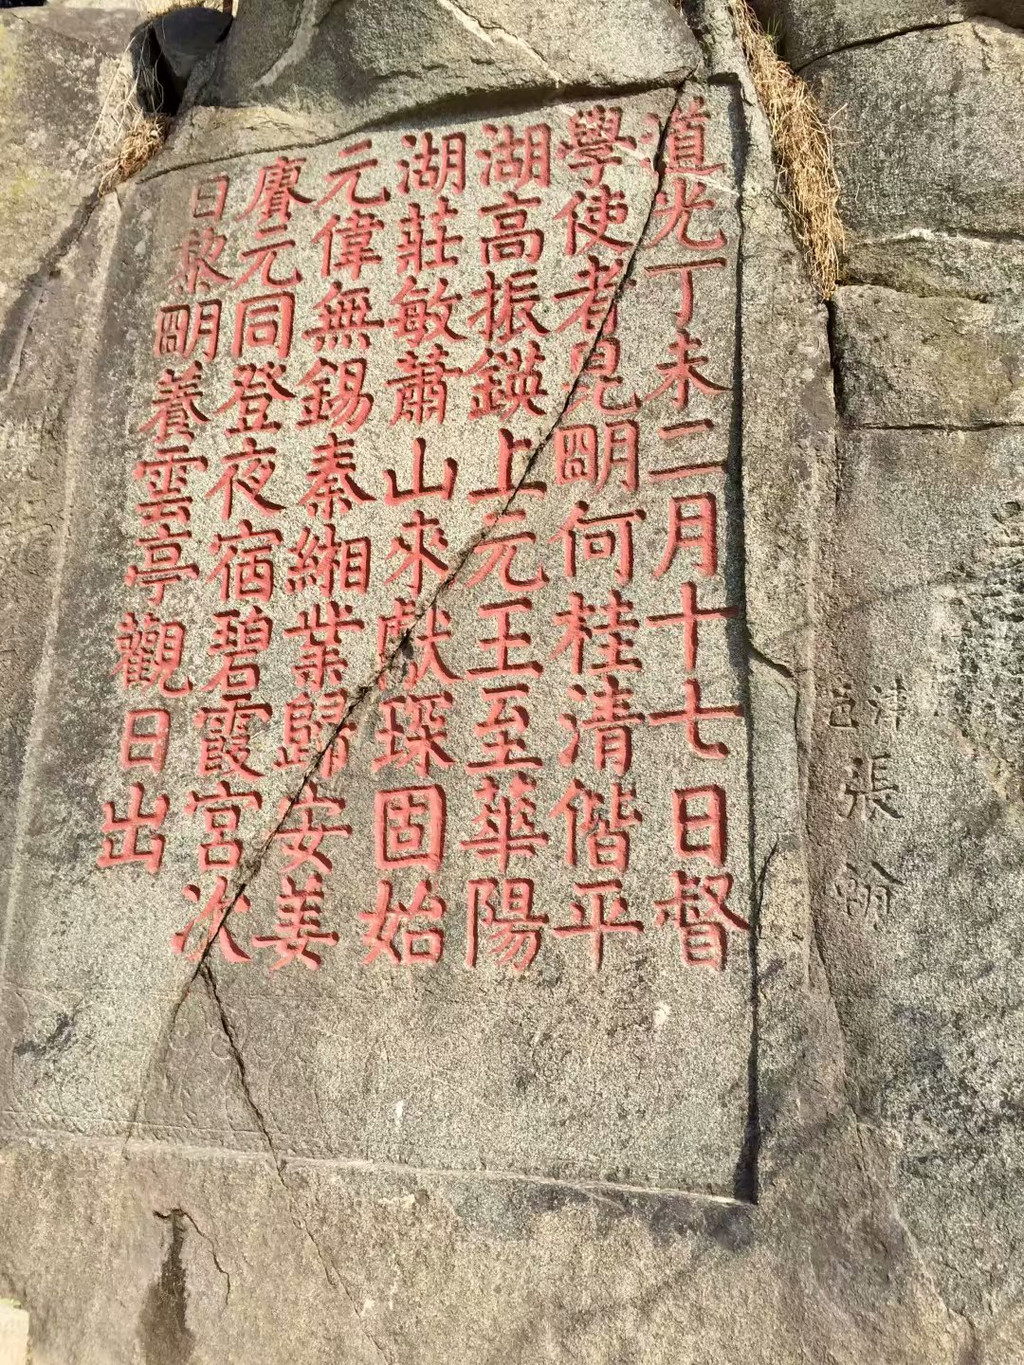 道光丁未二月十七日督
學使者昆朙何桂清偕平
湖高振鍈上元王至華陽
湖莊敏蕭山來獻琛固始
元偉無錫秦緗業歸安姜
賡元同登夜宿碧霞宮次
日黎朙養雲亭觀日出
津邑
張翰